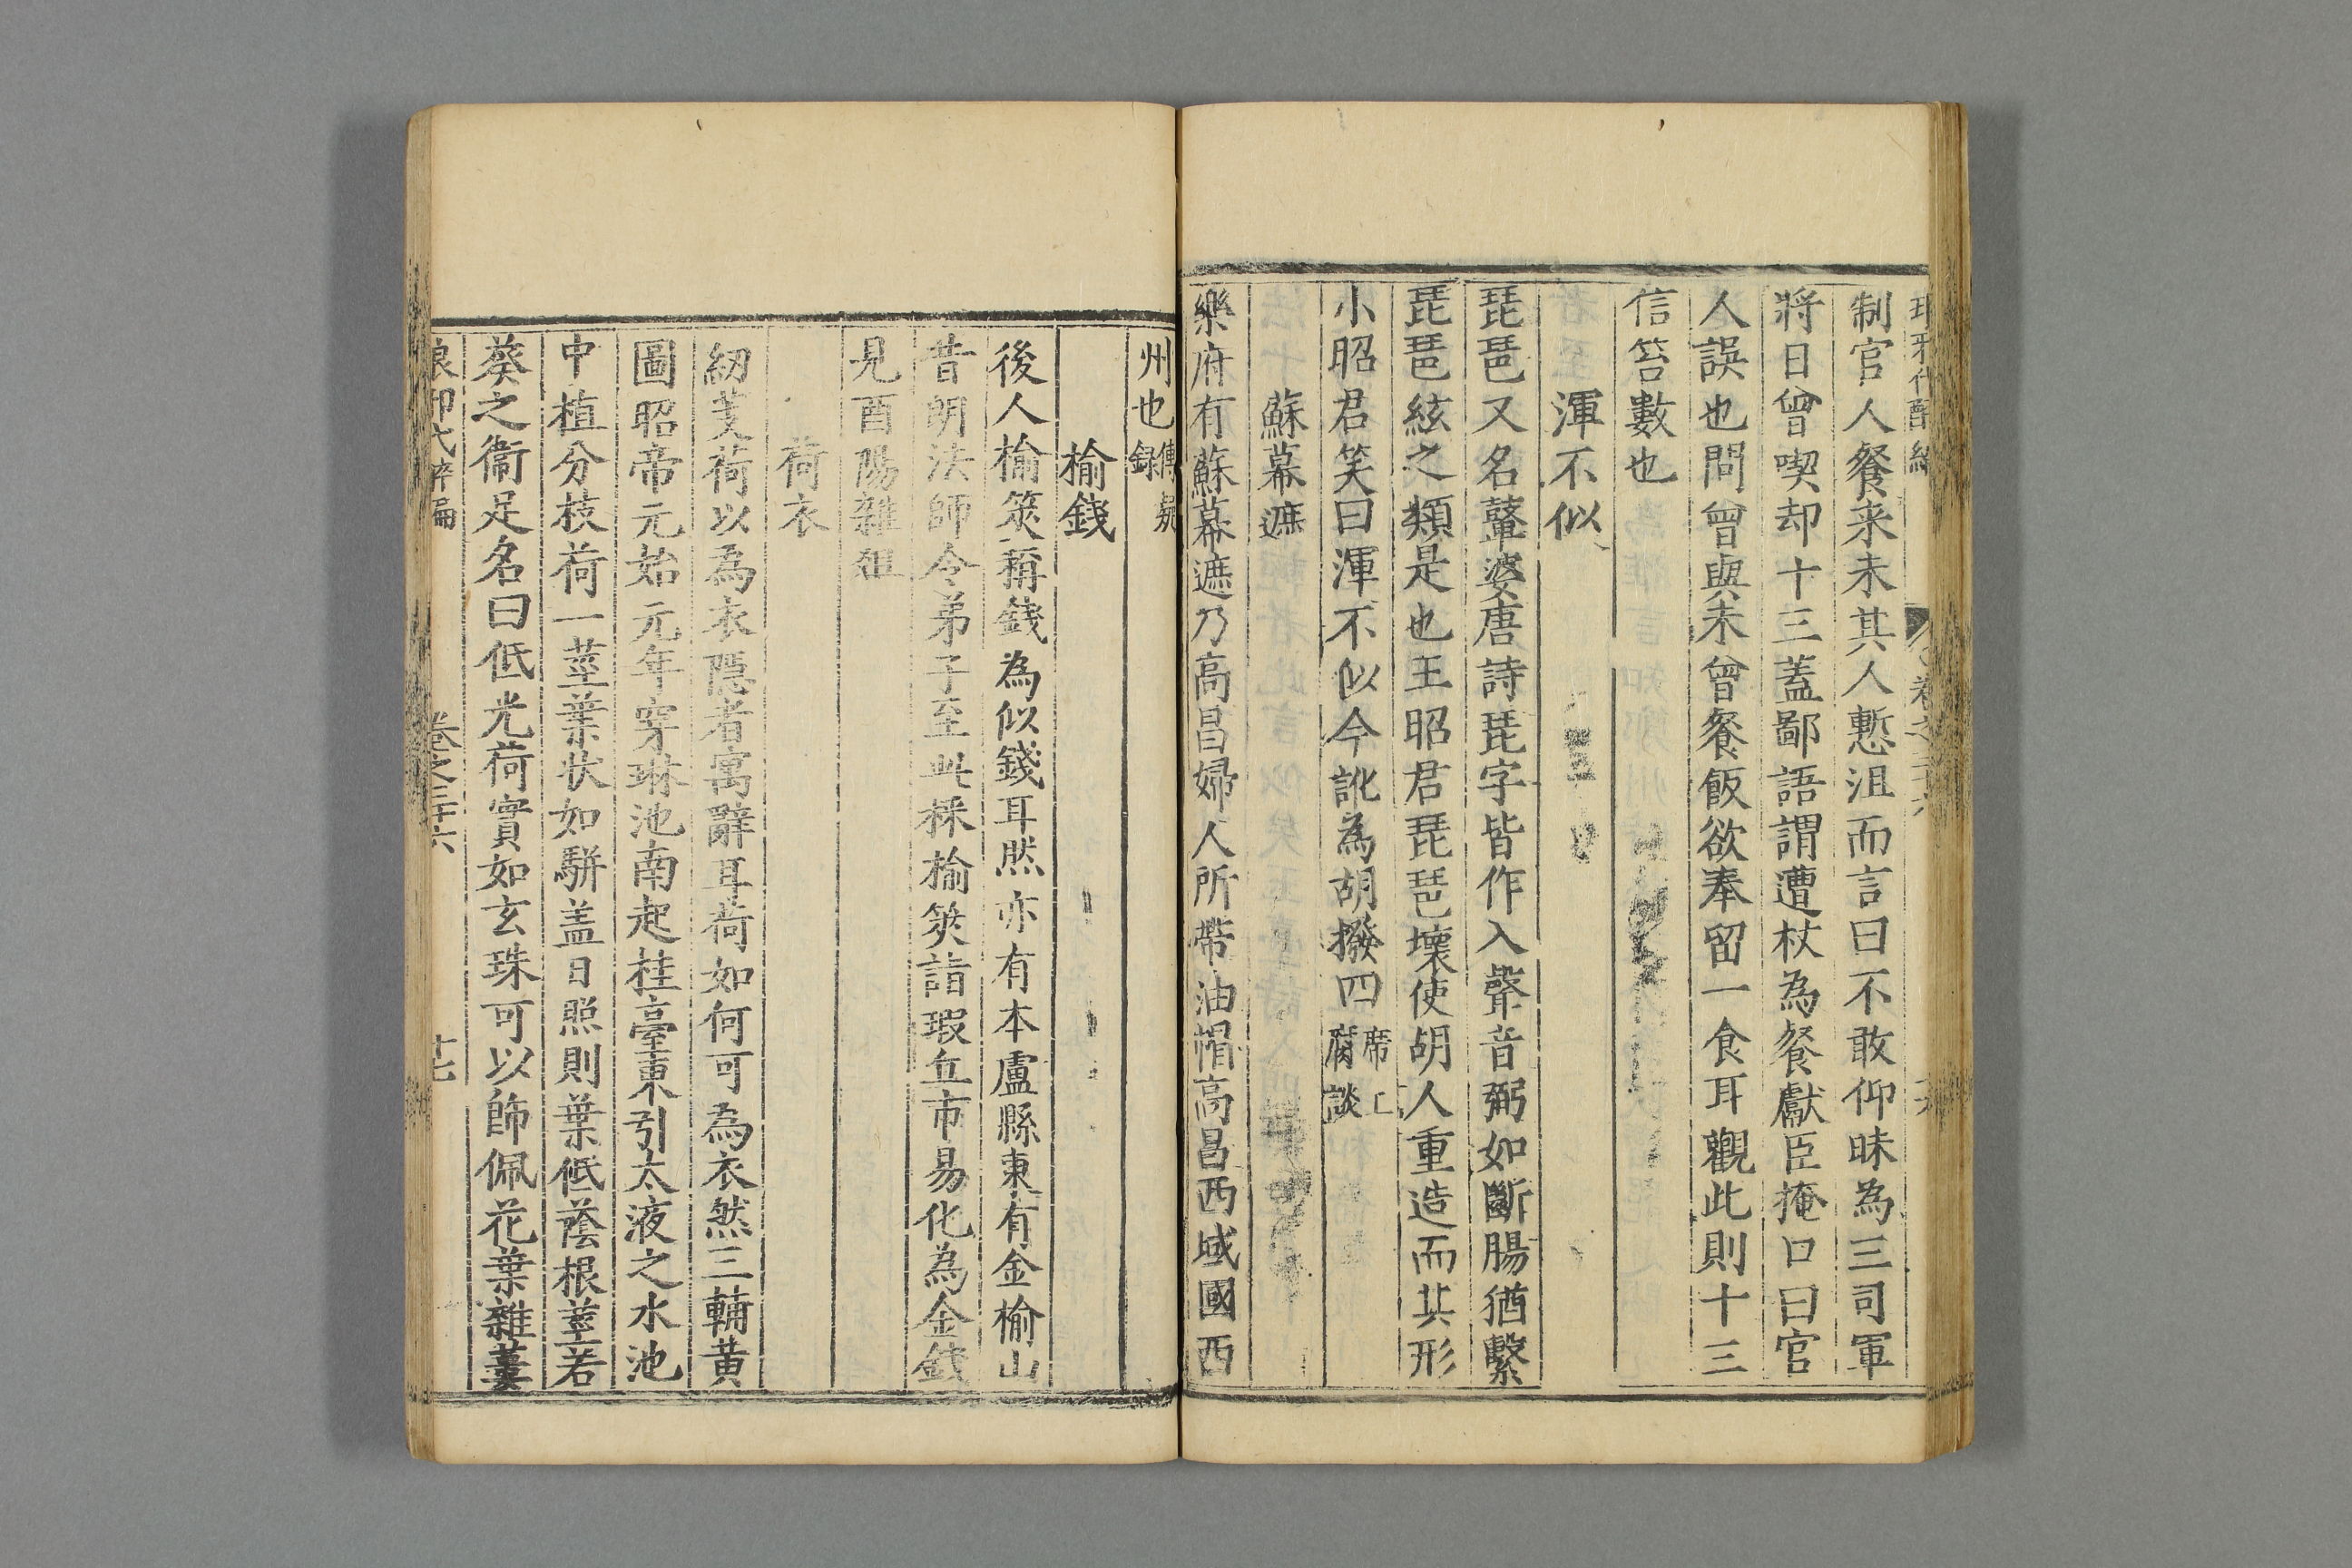 卷之三十六
制官人餐来未其人慙沮而言曰不敢仰昧為三司軍
將日曾喫却十三蓋鄙語謂遭杖為餐獻臣掩口曰官
人誤也問曾與未曾餐飯欲奉留一食耳觀此則十三
信笞數也
渾不似
琵琶又名鼙婆唐詩琵字皆作入聲音弼如斷腸猶繫
琵琶絃之類是也王昭君琵琶壞使胡人重造而其形
小昭君笑曰渾不似今訛為胡撥四席上
腐談
蘇幕遮
樂府有蘇幕遮乃高昌婦人所帶油帽高昌西域國西
州也
録
榆錢
後人榆筴稱錢為似錢耳然亦有本盧縣東有金榆山
昔朗法師令弟子至此採榆筴詣瑕丘市易化為金錢
見酉陽雜俎
荷衣
紉芰荷以為衣隱者寓辭耳荷如何可為衣然三輔黃
圖昭帝元始元年穿琳池南起桂臺東引太液之水池
中植分枝荷一莖葉狀如駢盖日照則葉低蔭根莖若
葵之衞足名曰低光荷實如玄珠可以飾佩花葉雜萎
卷之三十六
十七